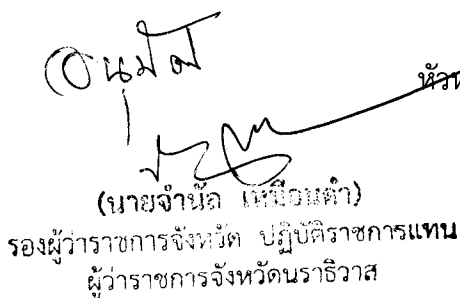 อนุมัติ
หัวห
(นายจำนัล เหมือนดำ)
รองผู้ว่าราชการจังหวัด ปฏิบัติราชการแทน
ผู้ว่าราชการจังหวัดนราธิวาส